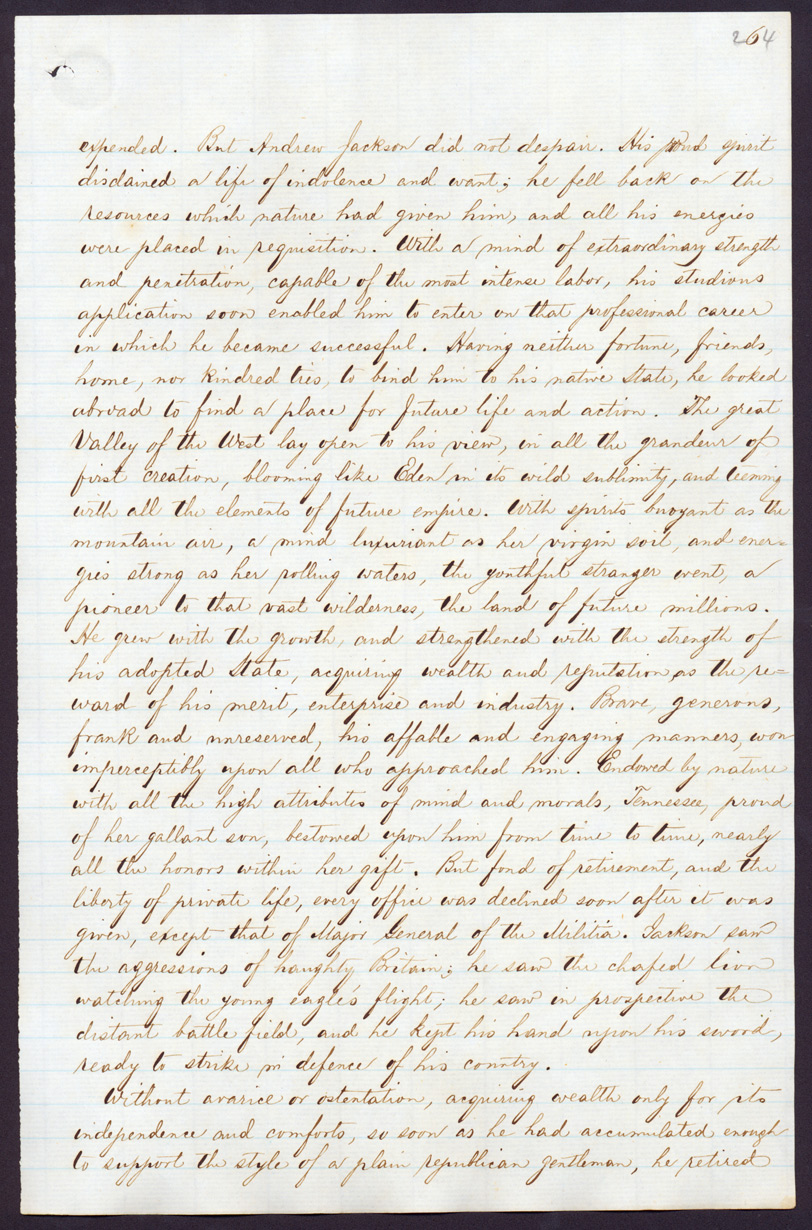 264
expended. But Andrew Jackson did not despair. His proud spirit
disdained a life of indolence and want; he fell back on the
resources which nature had given him, and all his energies
were placed in requisition. With a mind of extraordinary strength
and penetration, capable of the most intense labor, his studious
application soon enabled him to enter on that professional career
in which he became successful. Having neither fortune, friends,
home, nor kindred ties, to bind him to his native State, he looked
abroad to find a place for future life and action. The great
Valley of the West lay open to his view, in all the grandeur of
first creation, blooming like Eden in its wild sublimity, and teeming
with all the elements of future empire. With spirits buoyant as the
mountain air, a mind luxuriant as her virgin soil, and ener=
gies strong as her rolling waters, the youthful stranger went, a
pioneer to that vast wilderness, the land of future millions.
He grew with the growth, and strengthened with the strength of
his adopted State, acquiring wealth and reputation as the re=
ward of his merit, enterprise and industry. Brave, generous,
frank and unreserved, his affable and engaging manners, won
imperceptibly upon all who approached him. Endowed by nature
with all the high attributes of mind and morals, Tennessee, proud
of her gallant son, bestowed upon him from time to time, nearly
all the honors within her gift. But fond of retirement, and the
liberty of private life, every office was declined soon after it was
given, except that of Major General of the Militia. Jackson saw
the aggressions of haughty Britain; he saw the chafed lion
watching the young eagle's flight; he saw in prospective the
distant battle field, and he kept his hand upon his sword,
ready to strike in defence of his country.
Without avarice or ostentation, acquiring wealth only for its
independence and comforts, so soon as he had accumulated enough
to support the style of a plain republican gentleman, he retired